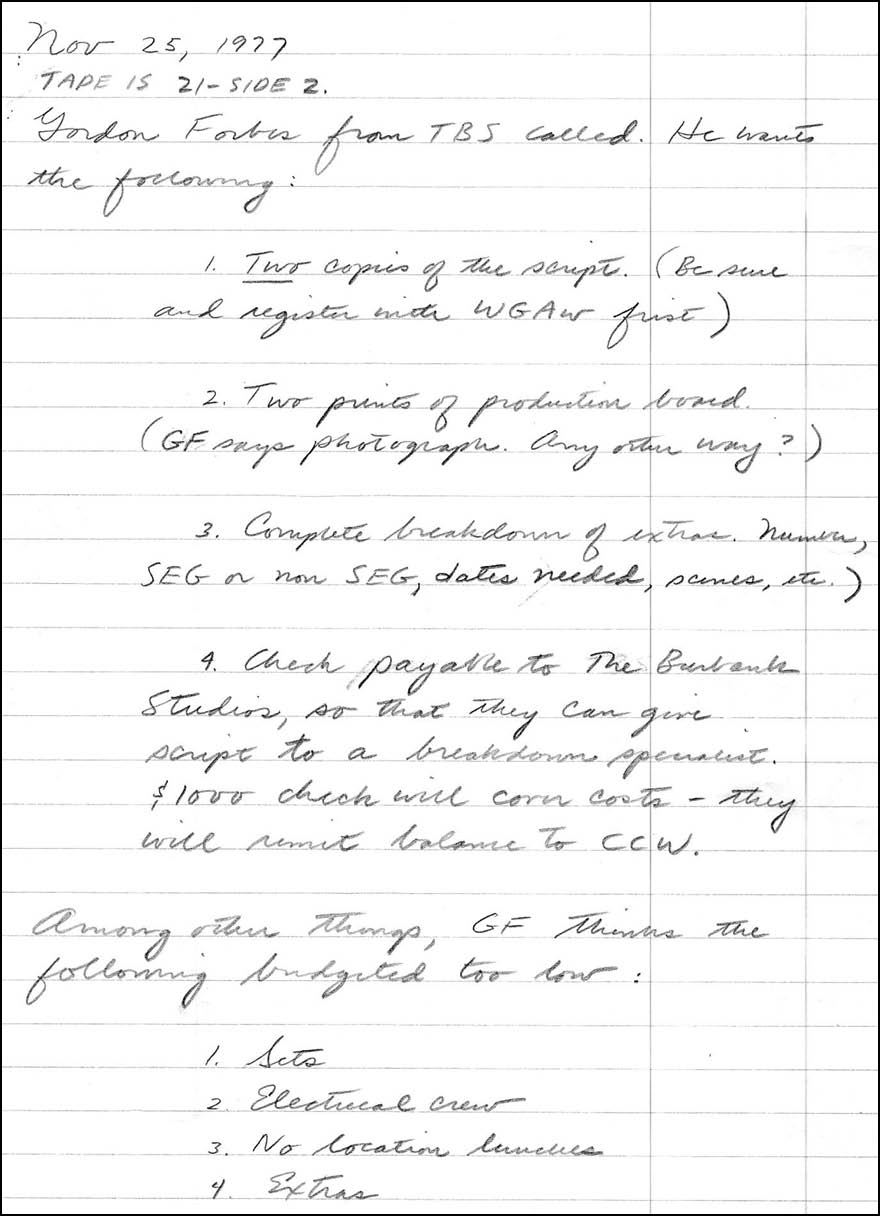 Nov 25, 1977
TAPE IS 21-SIDE 2.
Gordon Forbes from TBS called. He wants
the following:
1. Two copies of the script. (Be sure
and register with WGAw frist)
2. Two prints of production board.
(GF says photograph. Any other way?)
3. Complete breakdown of extras. Number,
SEG or non SEG, dates needed, scenes, etc.)
4. Check payable to The Burbank
Studios, so that they can give
script to a breakdown specialist.
$1000 check will cover costs - they
will remit balance to CCW.
Among other things, GF thinks the
following budgeted too low:
1. Sets
2. Electrical crew
3. No location lunches
4. Extras